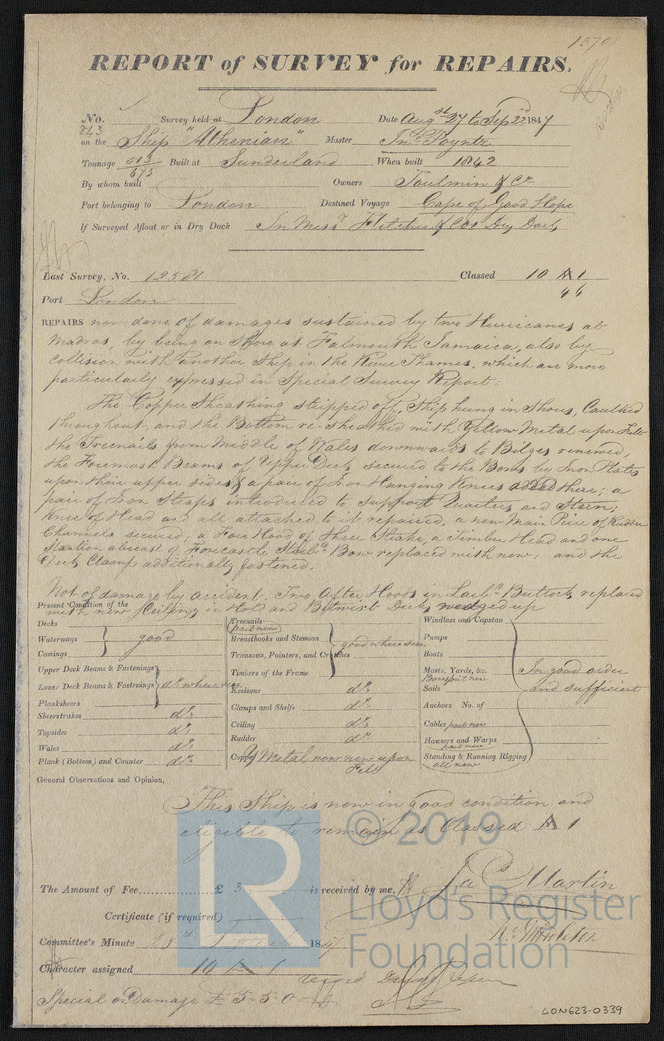 1370
REPORT of SURVEY for REPAIRS.
No. 843 Survey held at London Date Aug st 27 to Sep 22 1847
on the Ship "Athenian" Master Jno Poynte
Tonnage 613/673 Built at Sunderland When built 1842
By whom built Owners Toulmin & Co
Port belonging to London Destined Voyage Cape of Good Hope
If Surveyed Afloat or in Dry Dock In Messrs Fletcher & Cos Dry Dock
Last Survey, No. 12581 Classed 10 A 1
Port London 46
REPAIRS now done of damages sustained by two Hurricanes at
Madras, by being on Shore at Falmouth Jamaica, also by
Collision with another Ship in the River Thames, which are more
particularly expressed in Special Survey Report.
The Copper Sheathing stripped off, Ship hung in Shores, Caulked
throughout, and the Bottom re-sheathed with Yellow Metal upon Felt
the Treenails from Middle of Wales downwards to Bilges renewed,
the Foremost Beams of Upper Deck secured to the Bows by Iron Plates
upon their upper sides & a pair of Iron Hanging Knees added there; a
pair of Iron Straps introduced to support Quarters and Stern;
Knee of Head and all attached to it repaired, a new Main Piece of Rudder
Channels secured; a Fore Hood of Sheer Strake, a Timber Head and one
Stantion abreast of Forecastle Starbd Bow replaced with new; and the
Deck Clamp additionally fastened.
Not of damage by accident. Two After Hoods in Larbd Buttock replaced
with new; Ceiling in Hold and Betwixt Decks wedged up
Present Condition of the
Decks
Waterways
Comings
good
Upper Deck Beams & Fastenings
Lower Deck Beams & Fastenings
do where seen
Planksheers
Sheerstrakes do
Topsides do
Wales do
Plank (Bottom) and Counter do
Treenails
part new
Breasthooks and Stemson
Transoms, Pointers, and Crutches
Timbers of the Frame
good where seen
Keelsons do
Clamps and Shelfs do
Ceiling do
Rudder do
Copper Y Metal now new upon
Felt
Windlass and Capstan
Pumps
Boats
Masts, Yards, &c.
Bowsprit new
Sails
Anchors No. of
Cables part new
Hawsers and Warps
part new
Standing & Running Rigging
all new
In good order
and sufficient
General Observations and Opinion,
This Ship is now in good condition and
eligible to remain as Classed A 1
The Amount of Fee £ 3 is received by me, Ja C Martin
Certificate (if required)
Committee's Minute 28th 1847
Character assigned 10 A 1
Special or Damage £ 5-5-0
© 2019
LR
Lloyd's Register
Foundation
LON623-0339